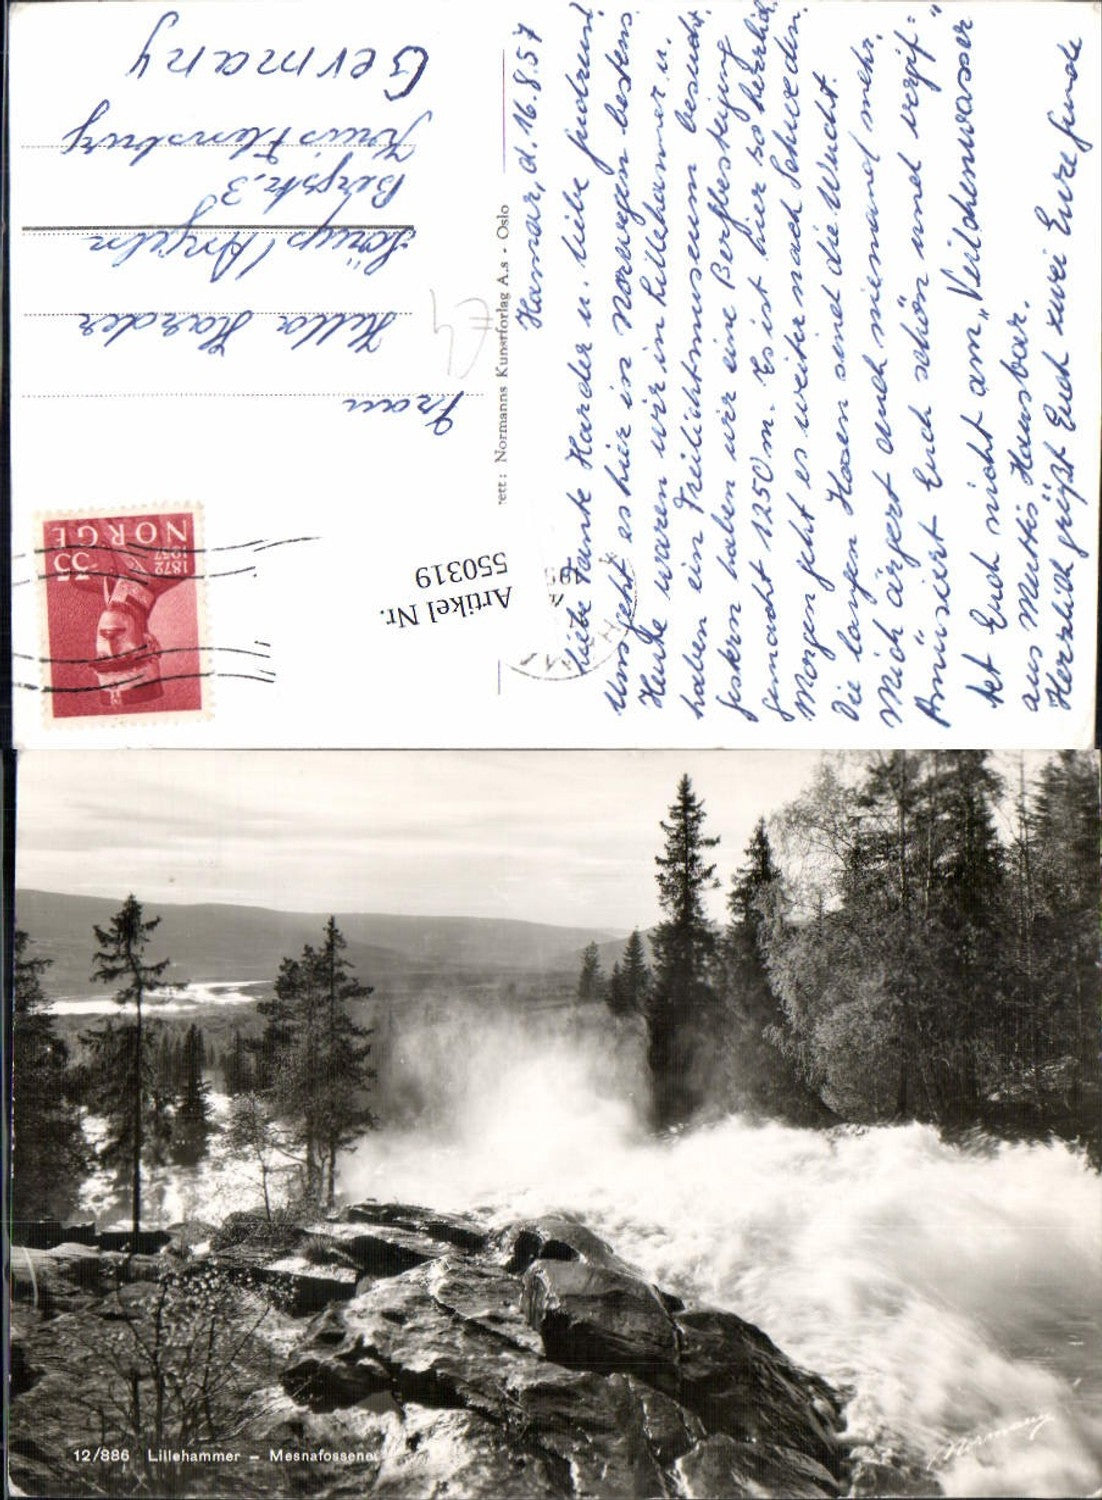 Hamar, d. 16.8.57
Liebe Tante Harder u. liebe
Uns geht es hier in Norwegen bestens.
Heute waren wir in Lillehammer u.
haben ein Freilichtmuseum besucht.
Gestern haben wir eine Bergbesteigung
gemacht 1250 m. Es ist hier so herrlich.
Morgen geht es weiter nach Schweden.
Die langen Hosen sind die Wucht.
Mich ärgert auch niemand mehr.
Amüsiert Euch schön und vergif=
tet Euch nicht am „Veilchenwasser"
aus Muttis Hausbar.
Herzlich grüßt Euch zwei Eure
Frau
Hella Harder
Sörup/Angeln
Bergstr. 3
Kreis Flensburg
Germany
NORGE
1872
1957
35
Artikel Nr.
550319
rett: Normanns Kunstforlag A.s - Oslo
12/886 Lillehammer - Mesnafossene
Normann